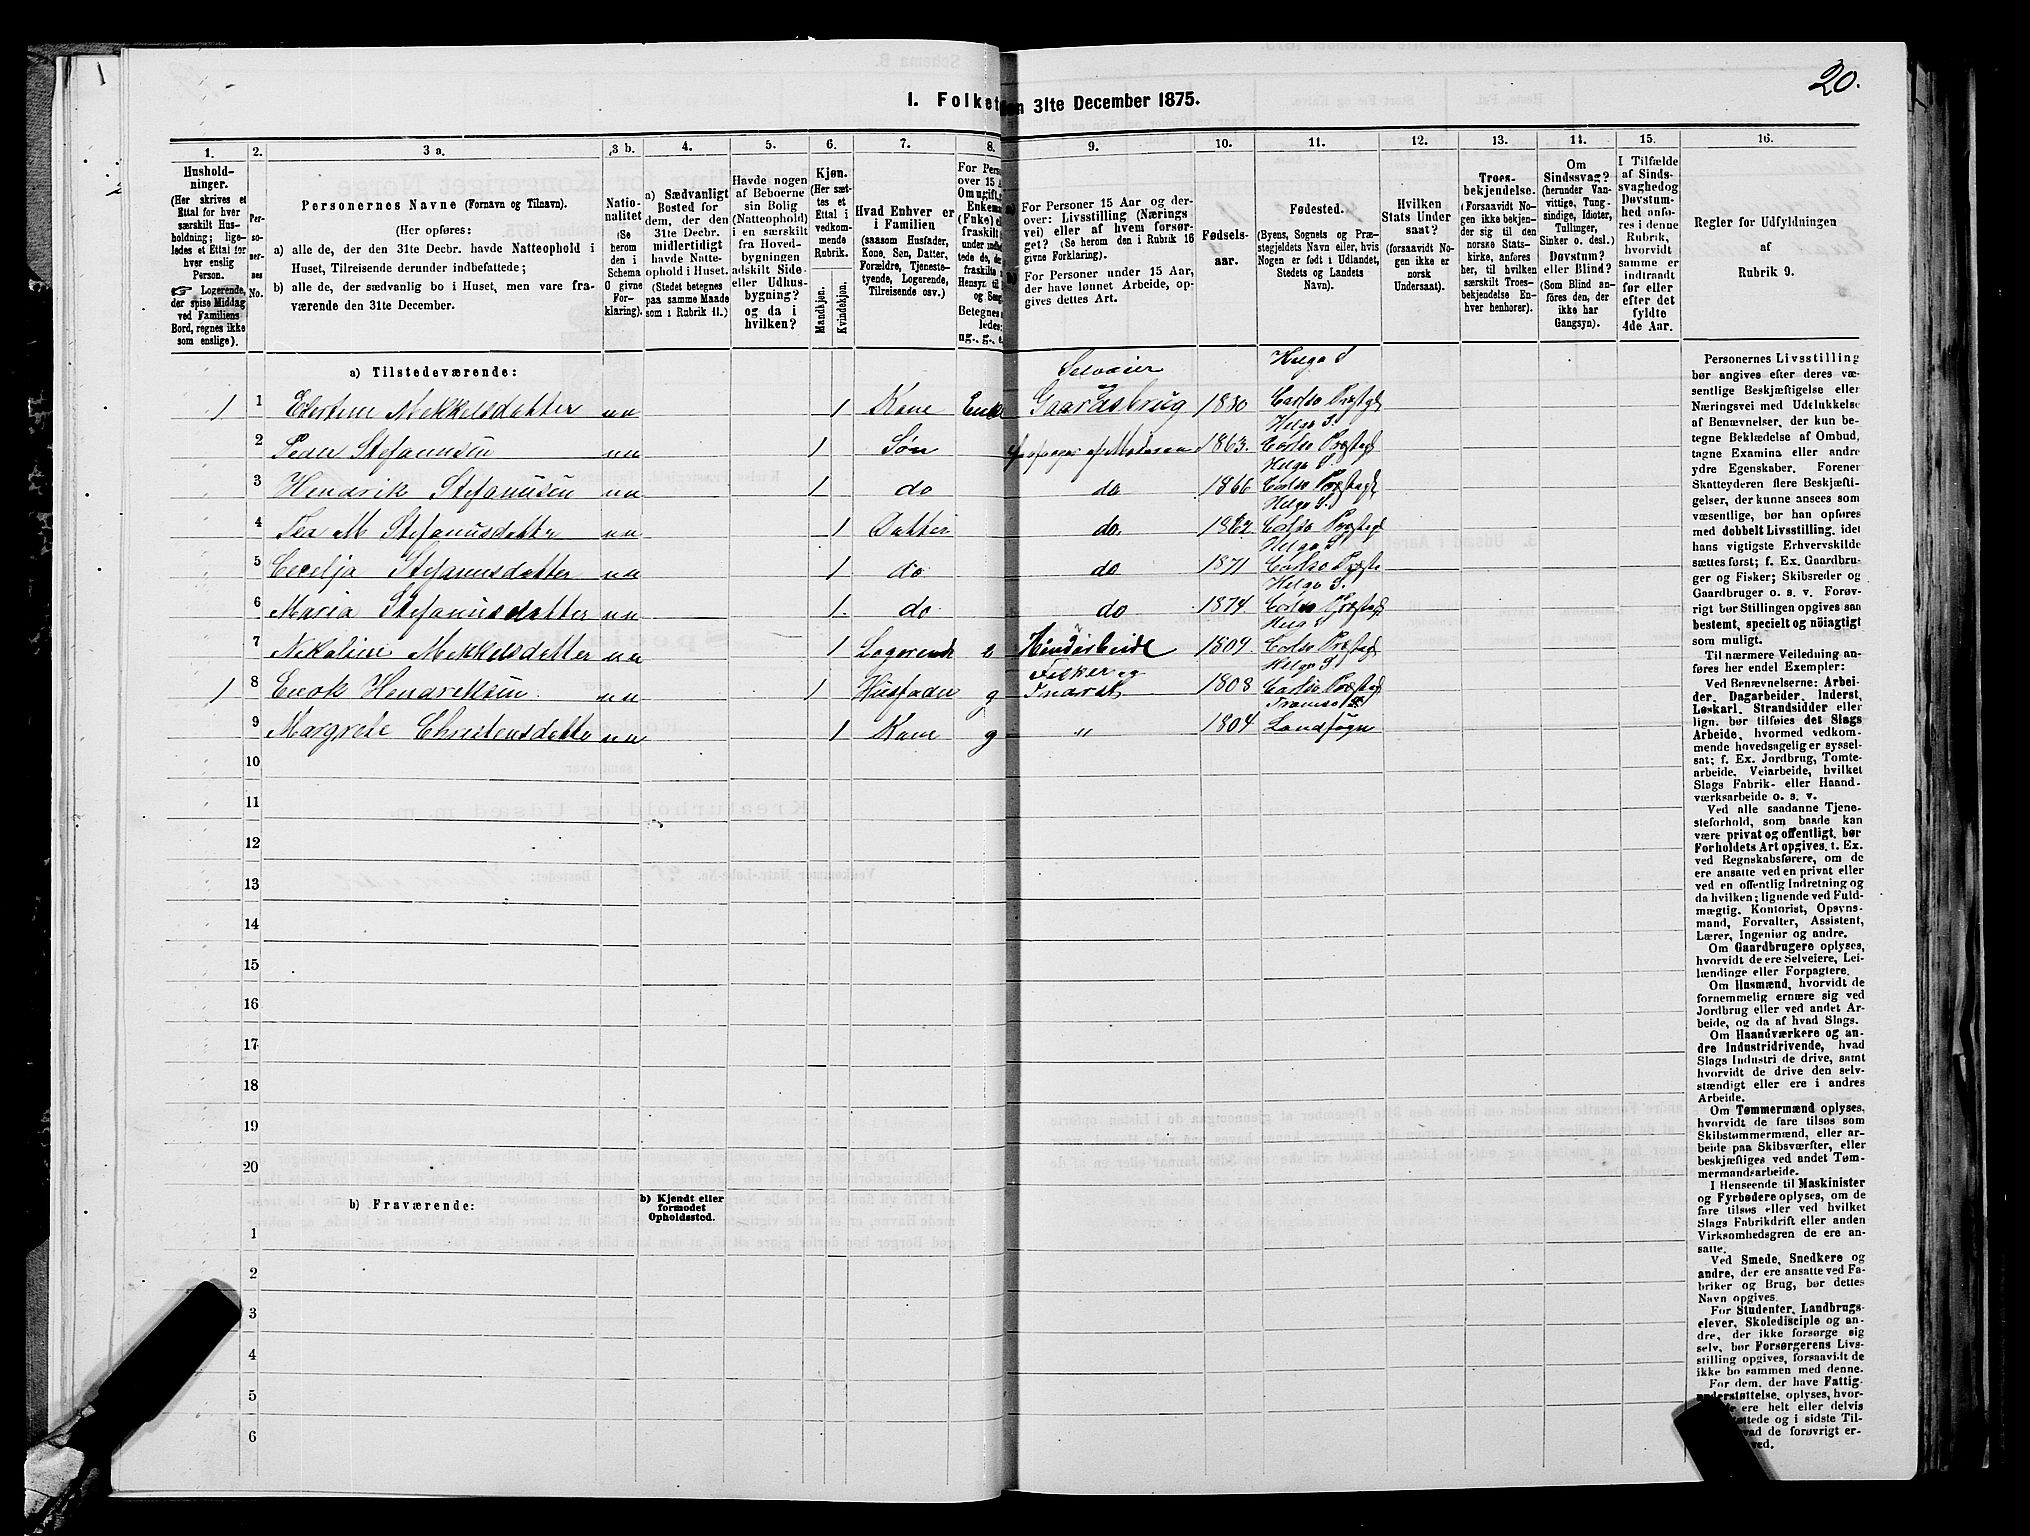 20.
I. Folket en 31te December 1875.
1. 2. 3 a. 3 b. 4. 5. 6. 7. 8. 9. 10. 11. 12. 13. 14. 15. 16.
Hushold-
ninger.
(Her skrives et
Ettal for hver
særskilt Hus-
holdning; lige-
ledes et Ettal for
hver enslig
Person.
☞ Logerende,
der spise Middag
ved Familiens
Bord, regnes ikke
som enslige).
Per-
so-
ner-
nes
No.
Personernes Navne (Fornavn og Tilnavn).
(Her opføres:
a) alle de, der den 31te Decbr. havde Natteophold i
Huset, Tilreisende derunder indbefattede;
b) alle de, der sædvanlig bo i Huset, men vare fra-
værende den 31te December.
Natio-
nalitet
(Se
herom
den i
Schema
O givne
For-
klaring).
a) Sædvanligt
Bosted for
dem, der den
31te Decbr.
midlertidigt
havde Natte-
ophold i Huset.
(Stedet betegnes
paa samme Maade
som i Rubrik 11.)
Havde nogen
af Beboerne
sin Bolig
(Natteophold)
i en særskilt
fra Hoved-
bygningen
adskilt Side-
eller Udhus-
bygning?
og da i
hvilken?
Kjøn.
(Her sæt-
tes et
Ettal i
vedkom-
mende
Rubrik.
Mandkjøn.
Kvindekjøn.
Hvad Enhver er
i Familien
(saasom Husfader,
Kone, Søn, Datter,
Forældre, Tjeneste-
tyende, Logerende,
Tilreisende osv.)
For Pers
over 15 A
Omugift,
Enkem
(Fnke) e
fraskilt
under indbe
tede de,
fraskilte
Hensyn til
og Seng
Betegnes
ledes:
ug., g., e.
For Personer 15 Aar og der-
over: Livsstilling (Nærings
vei) eller af hvem forsør-
get? (Se herom den i Rubrik 16
givne Forklaring).
For Personer under 15 Aar,
der have lønnet Arbeide, op-
gives dettes Art.
Fødsels-
aar.
Fødested.
(Byens, Sognets og Præ-
stegjeldets Navn eller, hvis
Nogen er født i Udlandet,
Stedets og Landets
Navn).
Hvilken
Stats Under
saat?
(forsaavidt No-
gen ikke er
norsk
Undersaat).
Troes-
bekjendelse.
(Forsaavidt No-
gen ikke bekjen-
der sig til den
norske Stats-
kirke, anføres
her, til hvilken
særskilt Troes-
bekjendelse En-
hver henhører).
Om
Sindssvag?
(herunder Van-
vittige, Tung-
sindige, Idioter,
Tullinger,
Sinker o. desl.)
Døvstum?
eller Blind?
(Som Blind an-
føres den, der
ikke har
Gangsyn).
I Tilfælde
af Sinds-
svaghed og
Døvstum-
hed anfø-
res i denne
Rubrik,
hvorvidt
samme er
indtraadt
før eller
efter det
fyldte
4de Aar.
Regler for Udfyldningen
af
Rubrik 9.
a) Tilstedeværende:
Selveier Helgø S
1 1 Mekkelsdatter nn 1 Kone Enke og Gaardsbrug 1830 Carlsø Præstgd
Helgø S.
2 Peder Stefanusen nn 1 Søn 1863. Carlsø Præstegd
Helgø S.
3 Hendrik Stefanusen nn 1 do do 1866 Carlsø Præstegd
Helgø S.
4 M Stefanusdatter nn 1 Datter do. Carlsø Præstegd
Helgø S
5 Cecelja Stefanusdatter nn 1 do do 1871 Carlsø Præste
Helgø S.
6 Maria Stefanusdatter nn 1. do do 1874. Carlsø Præstegd
Helgø S
7 Nikoline Mekkelsdatter nn 1 Logerende e Haandarbeide 1809 Carlsø Præstegd
Fisker og Helgø S.
1 8 Enok Hendreksen nn 1 Husfader g Inderst 1808 Carlsø Præstegd
Tromsø
9 Margrete Christensdatte nn 1 Kone g " 1804 Landsogn
10
11
12
13
14
15
16
17
18
19
20
b) Fraværende:
b) Kjendt eller
formodet
Opholdssted.
1
2
3
4
5
6
Personernes Livsstilling
bør angives efter deres væ-
sentlige Beskjæftigelse eller
Næringsvei med Udelukkelse
af Benævnelser, der kun be-
tegne Beklædelse af Ombud,
tagne Examina eller andre
ydre Egenskaber. Forener
Skatteyderen flere Beskjæfti-
gelser, der kunne ansees som
væsentlige, bør han opføres
med dobbelt Livsstilling, idet
hans vigtigste Erhvervskilde
sættes først; f. Ex. Gaardbru-
ger og Fisker; Skibsreder og
Gaardbruger o. s. v. Forøv-
rigt bør Stillingen opgives saa
bestemt, specielt og nöiagtigt
som muligt.
Til nærmere Veiledning an-
føres her endel Exempler:
Ved Benævnelserne: Arbei-
der, Dagarbeider, Inderst,
Løskarl, Strandsidder eller
lign. bør tilføies det Slags
Arbeide, hvormed vedkom-
mende hovedsagelig er syssel-
sat; f. Ex. Jordbrug, Tomte-
arbeide, Veiarbeide, hvilket
Slags Fabrik- eller Haand-
værksarbeide o. s. v.
Ved alle saadanne Tjene-
steforhold, som baade kan
være privat og offentligt, bør
Forholdets Art opgives, t. Ex.
ved Regnskabsførere, om de
ere ansatte ved en privat eller
ved en offentlig Indretning og
da hvilken; lignende ved Fuld-
mægtig, Kontorist, Opsyns-
mand, Forvalter, Assistent,
Lærer, Ingeniør og andre.
Om Gaardbrugere oplyses,
hvorvidt de ere Selveiere, Lei-
lændinge eller Forpagtere.
Om Husmænd, hvorvidt de
fornemmelig ernære sig ved
Jordbrug eller ved andet Ar-
beide, og da af hvad Slags.
Om Haandværkere og an-
dre Industridrivende, hvad
Slags Industri de drive, samt
hvorvidt de drive den selv-
stændigt eller ere i andres
Arbeide.
Om Tømmermænd oplyses,
hvorvidt de fare tilsøs som
Skibstømmermænd, eller ar-
beide paa Skibsværfter, eller
beskjæftiges ved andet Tøm-
mermandsarbeide.
I Henseende til Maskinister
og Fyrbødere oplyses, om de
fare tilsøs eller ved hvilket
Slags Fabrikdrift eller anden
Virksomhedsgren de ere an-
satte.
Ved Smede, Snedkere og
andre, der ere ansatte ved Fa-
briker og Brug, bør dettes
Navn opgives.
For Studenter, Landbrugs-
elever, Skoledisciple og an-
dre, der ikke forsørge sig
selv, bør Forsørgerens Livs-
stilling opgives, forsaavidt de
ikke bo sammen med denne.
For dem, der have Fattig-
understøttelse, oplyses, hvor-
ere helt eller delvis
ttede og i sidste Til-
vad de forøvrigt er-
ved.